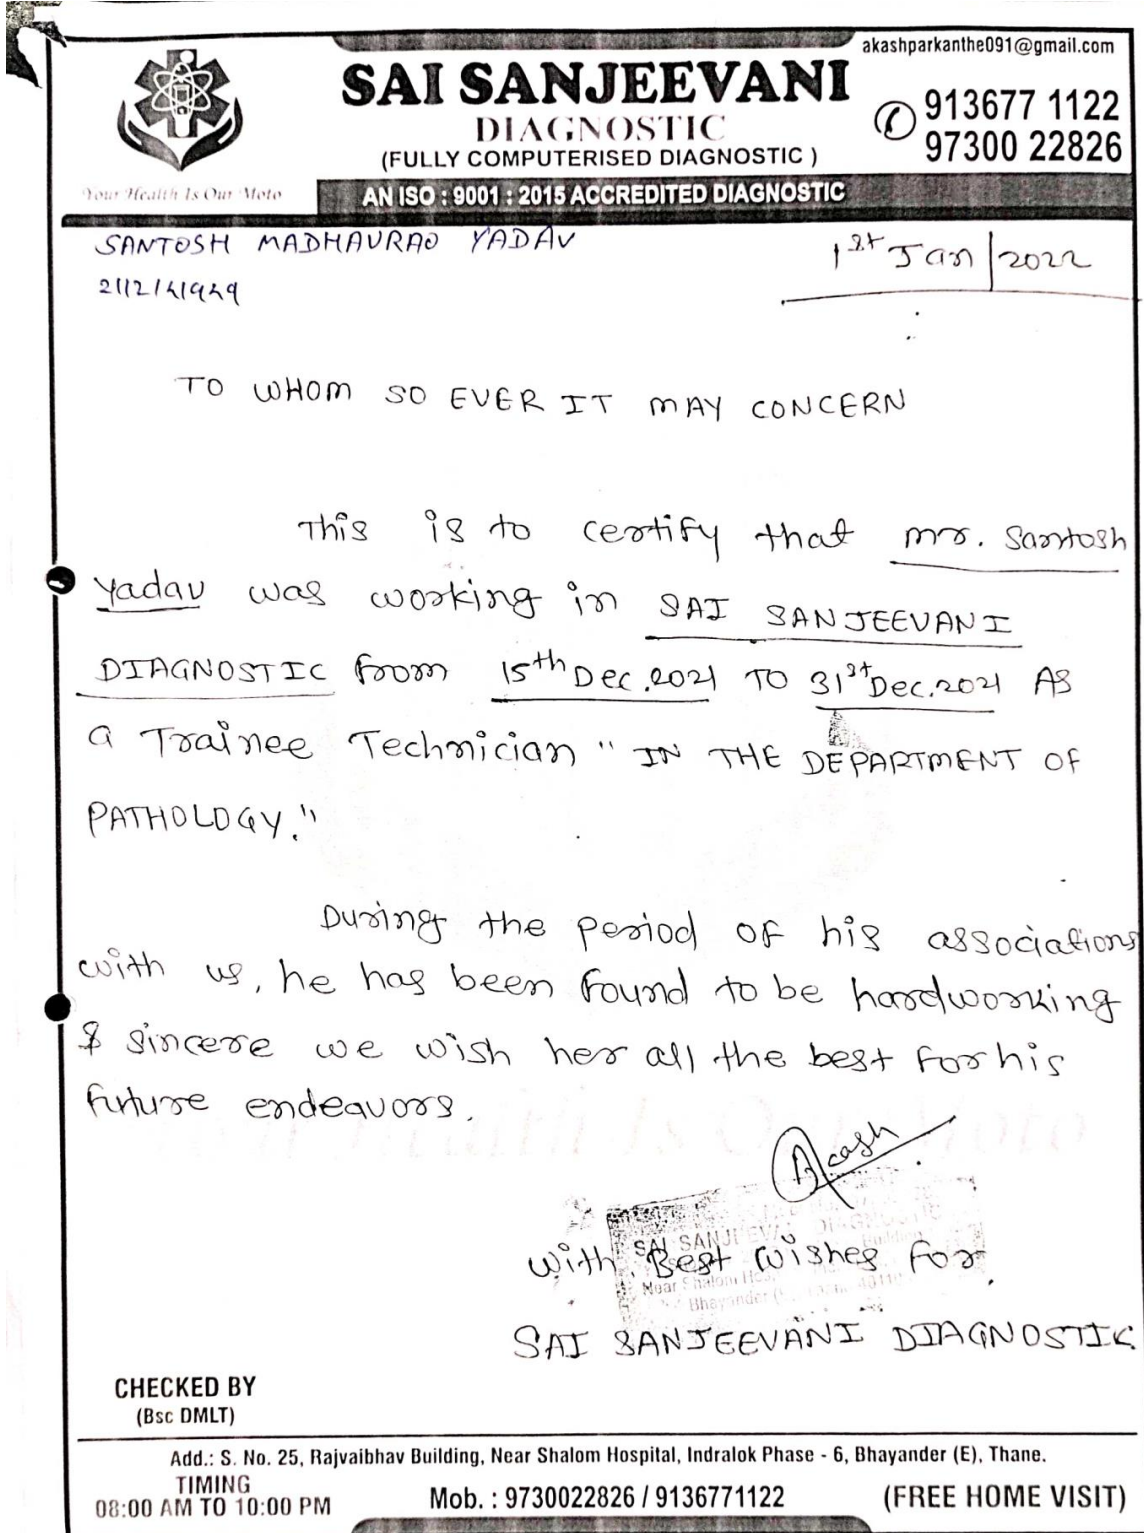 akashparkanthe091@gmail.com
SAI SANJEEVANI
DIAGNOSTIC
(FULLY COMPUTERISED DIAGNOSTIC )
913677 1122
97300 22826
Your Health Is Our Moto
AN ISO : 9001 : 2015 ACCREDITED DIAGNOSTIC
SANTOSH MADHAVRAO YADAV
1st Jan/2022
TO WHOM SO EVER IT MAY CONCERN
This is to certify that mr. Santosh
Yadav was working in SAI SANJEEVANI
DIAGNOSTIC from 15th Dec.2021 TO 31st Dec.2021 AS
a Trainee Technician " IN THE DEPARTMENT OF
PATHOLOGY."
During the period of his associations
with us, he has been found to be hardworking
& sincere we wish her all the best for his
future endeavors.
Acash
SAI SANJEEVANI DIAGNOSTIC
Building
With Best Wishes For
Near Shalom
Bhayander
SAI SANJEEVANI DIAGNOSTIC
CHECKED BY
(Bsc DMLT)
Add.: S. No. 25, Rajvaibhav Building, Near Shalom Hospital, Indralok Phase - 6, Bhayander (E), Thane.
TIMING
08:00 AM TO 10:00 PM
Mob. : 9730022826 / 9136771122
(FREE HOME VISIT)